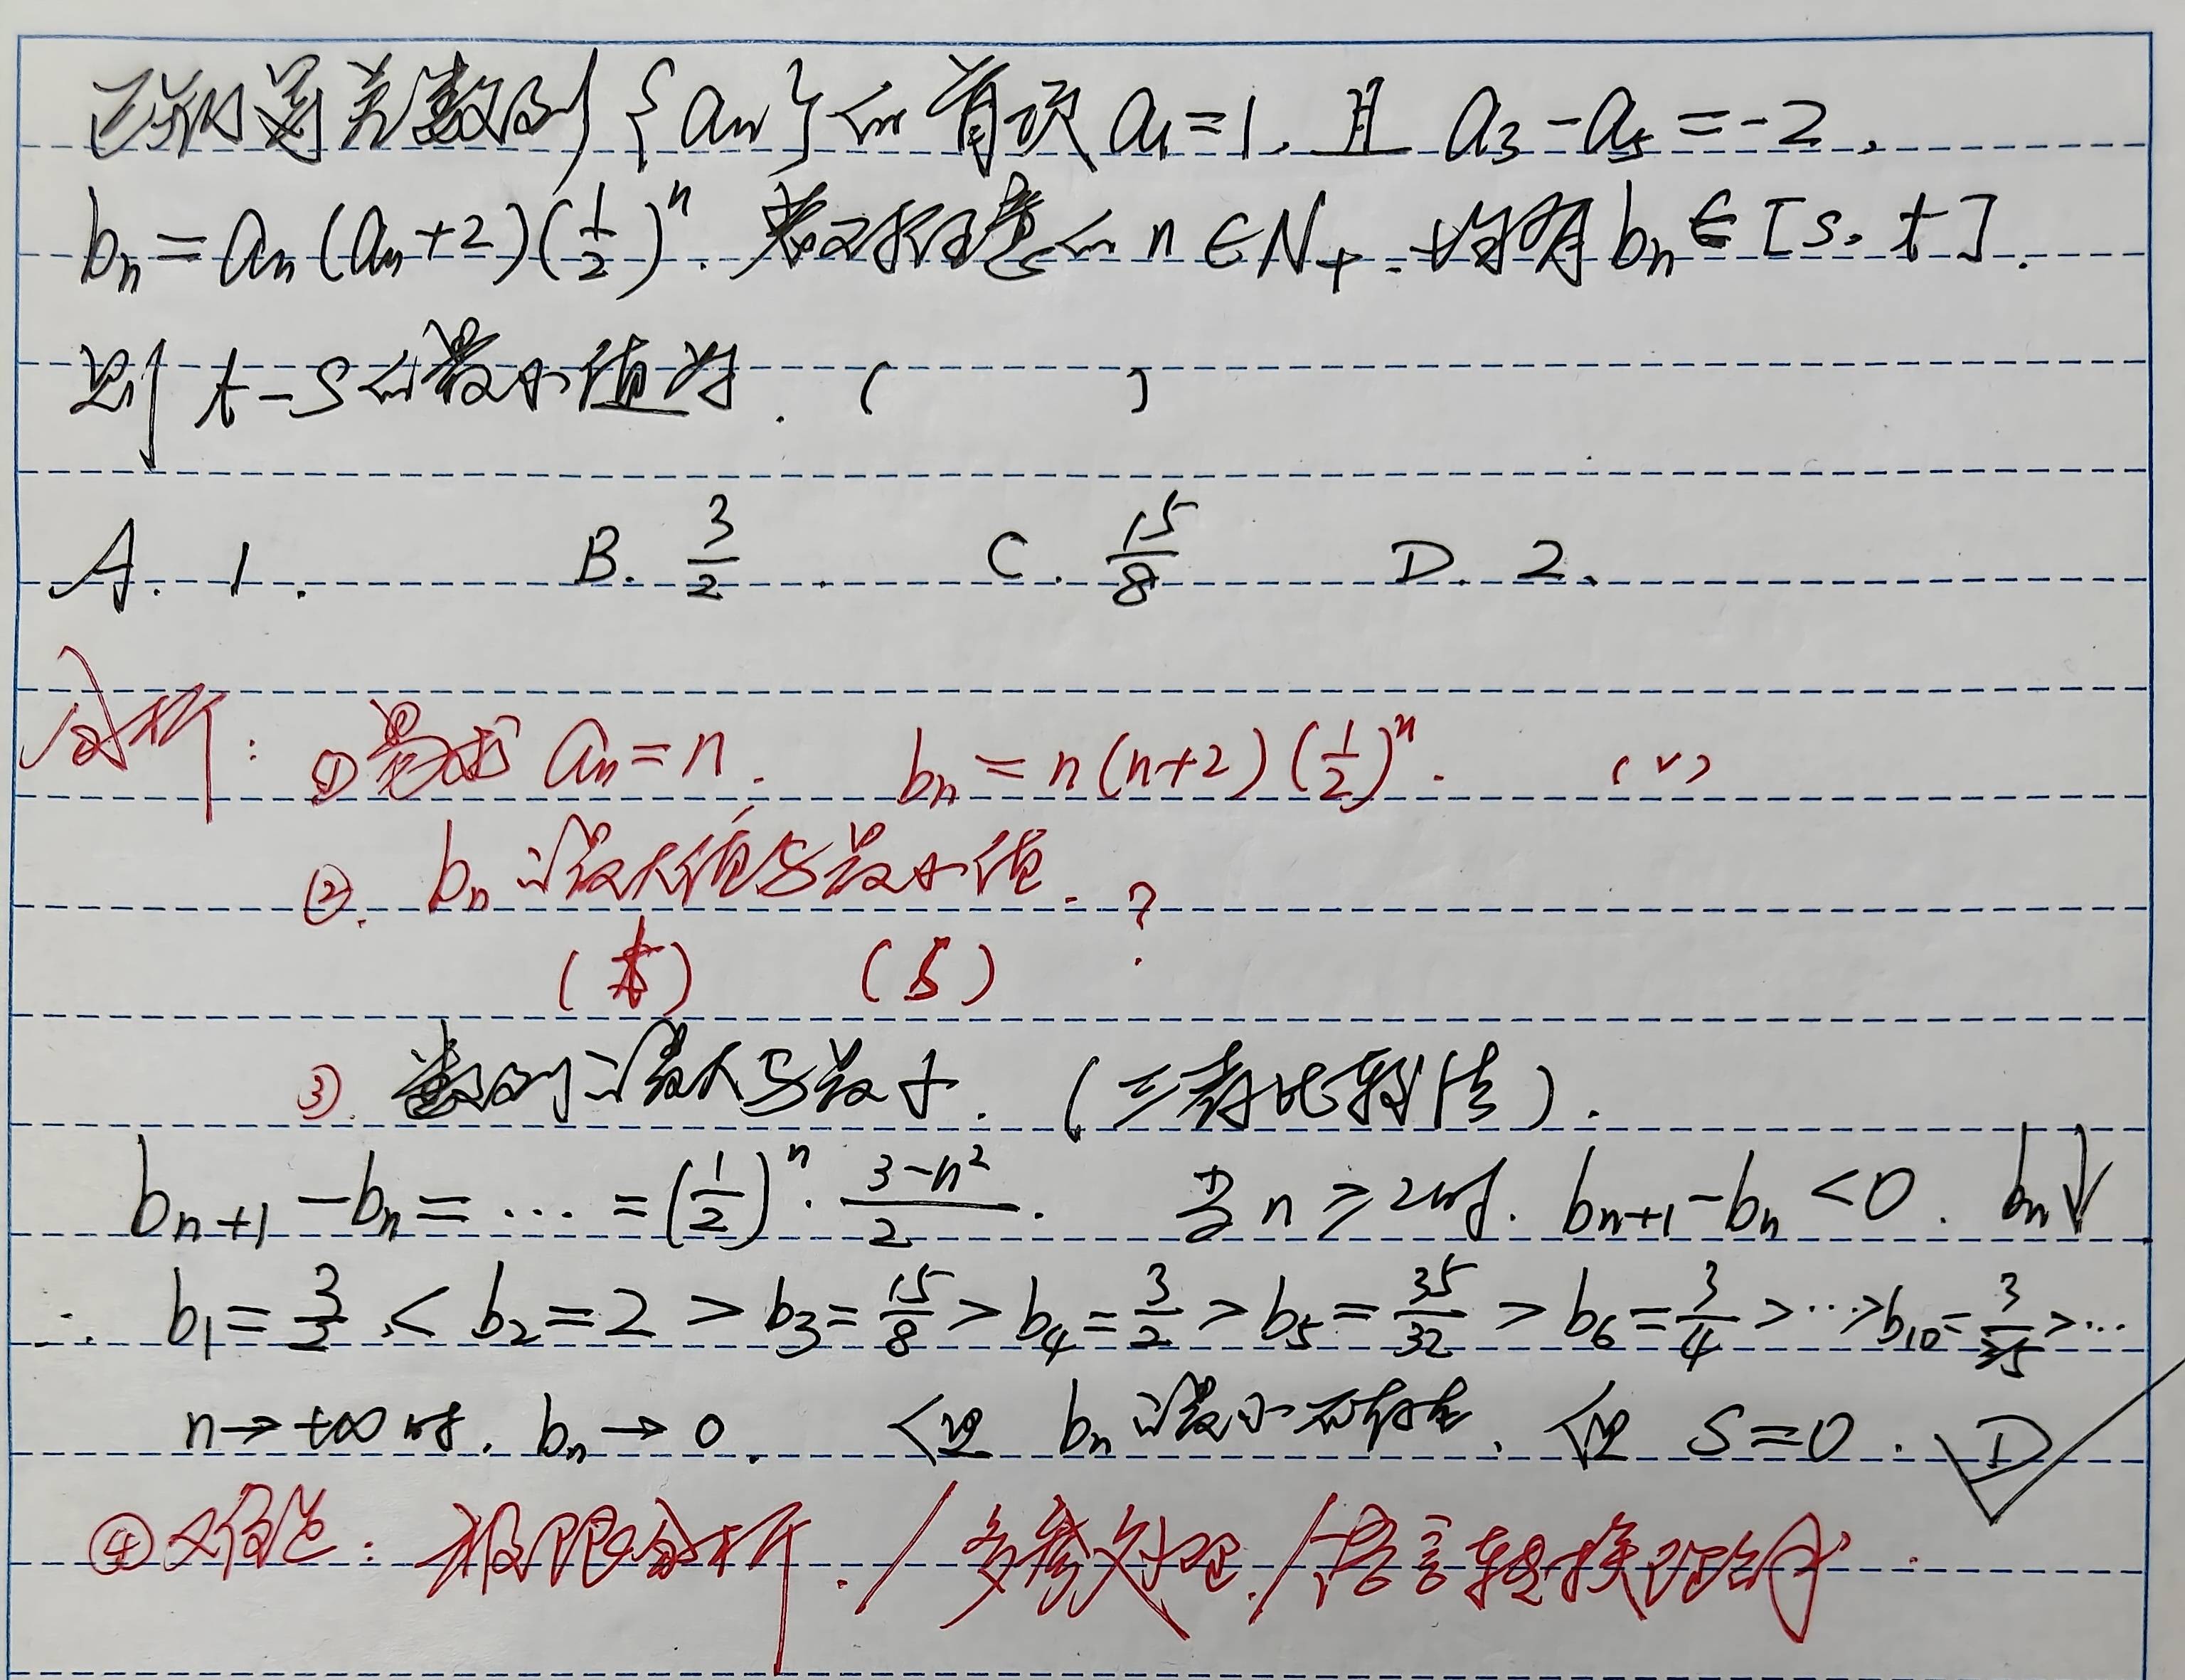 已知等差数列{an}的首项a1=1,且a3-a5=-2,
bn=an(an+2)(1/2)^n.若对任意的n∈N+.均有bn∈[s,t].
则t-s的最小值为.( )
A. 1. B. 3/2. C. 15/8 D. 2.
分析: ①易求 an=n. bn=n(n+2)(1/2)^n. (√)
②. bn的最大值与最小值.?
(t) (s)
③. 数列的最大与最小.(三项比较法).
bn+1-bn=…=(1/2)^n·(3-n²)/2. 当n≥2时. bn+1-bn<0. bn↓
∴ b1=3/2<b2=2>b3=15/8>b4=3/2>b5=35/32>b6=3/4>…>b10=3/25>…
n→+∞时. bn→0. 但bn的最小不存在, 但S=0. D
④ : 极限分析./多参处理./语言转换